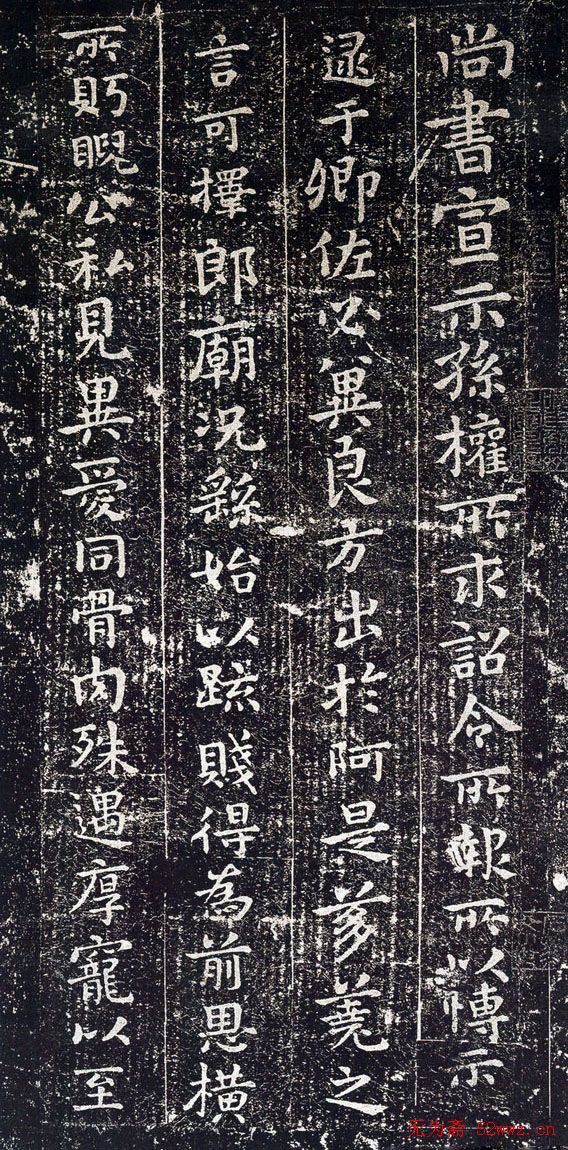 尚書宣示孫權所求詔令所報所以博示
逮于卿佐必冀良方出於阿是芻蕘之
言可擇郎廟況繇始以疏賤得為前恩橫
所眄睨公私見異愛同骨肉殊遇厚寵以至
无为斋.52wwz.cn